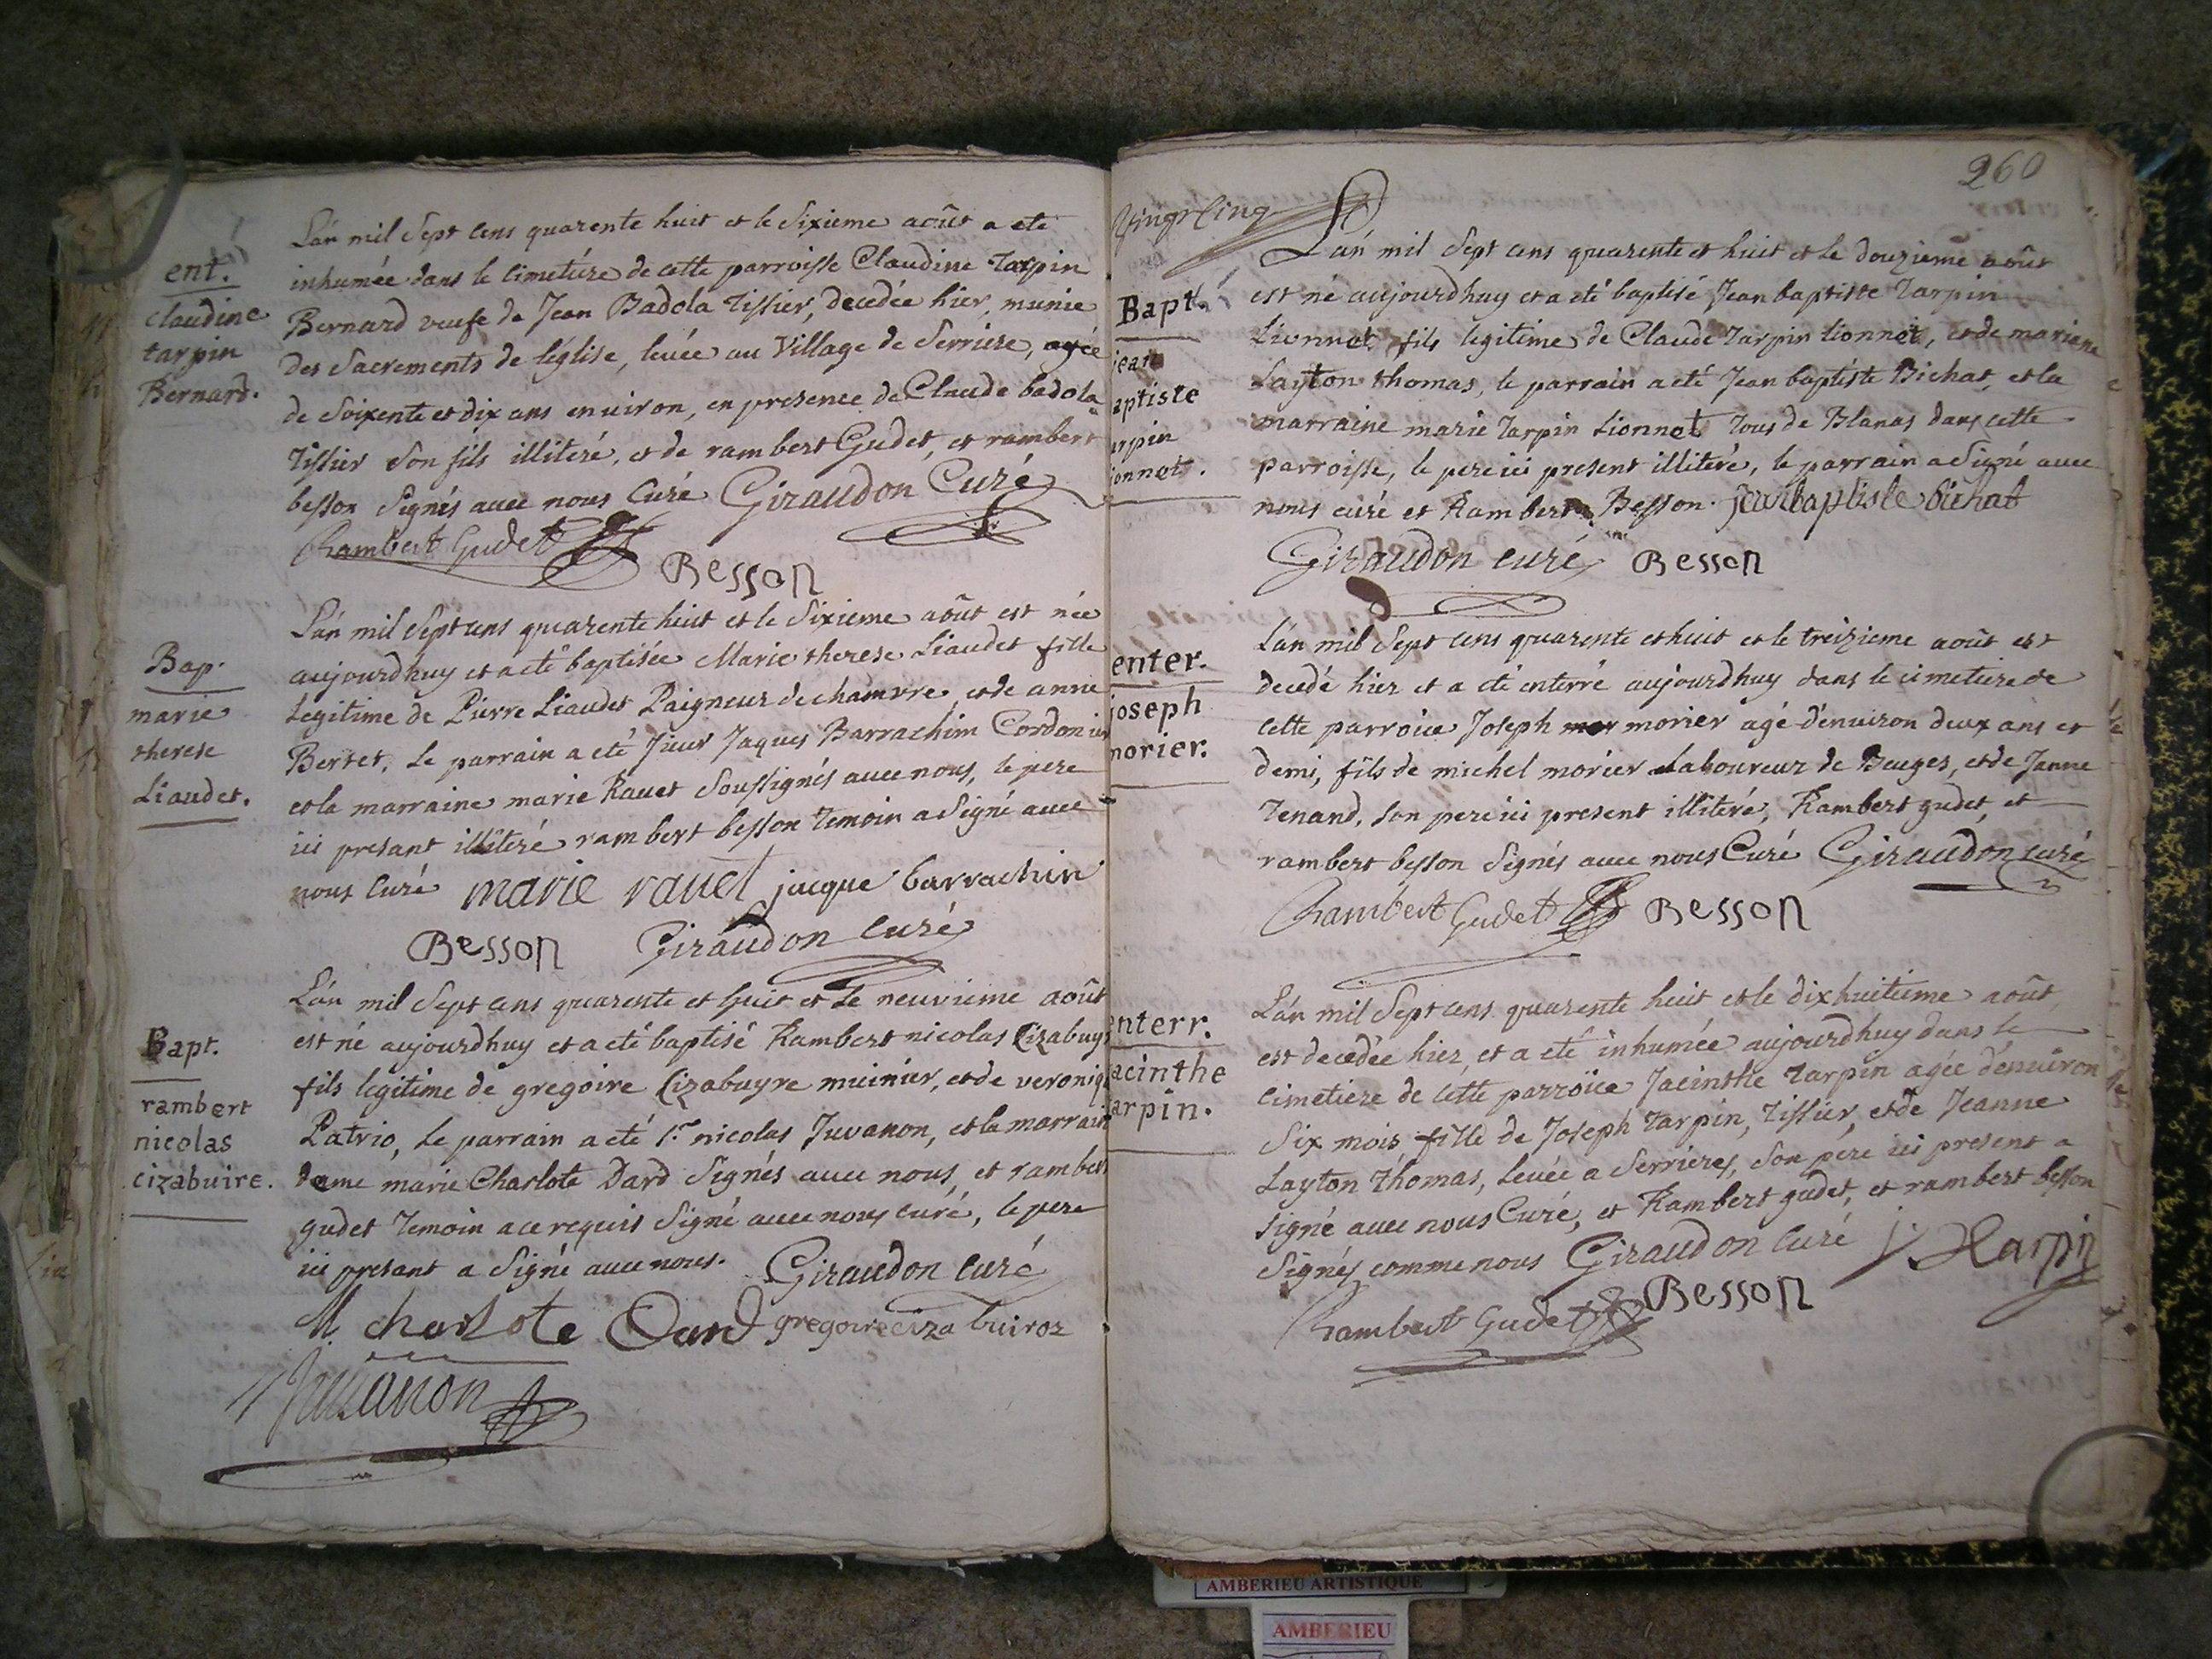 ent.
claudine
tarpin
Bernard.
L'an mil Sept cens quarente huit et le Sixieme août a eté
inhumée dans le cimetiére de cette parroisse Claudine Tarpin
Bernard veufe de Jean Badola Tissier, decedée hier, munie
des Sacrements de l'église, levée au Village de Serriére, agée
de Soixente et dix ans environ, en presence de Claude badola
Tissier Son fils illiteré, et de rambert Gudet, et rambert
besson Signés avec nous Curé Giraudon Curé
Rambert Gudet
Besson
Bap.
marie
therese
Liaudet.
L'an mil Sept cens quarente huit et le Sixieme août est née
aujourdhuy et a eté baptisée Marie therese Liaudet fille
legitime de Pierre Liaudet Paigneur de chamvre, et de anne
Bertet, Le parrain a eté Jaques Barrachim Cordonier
et la marraine marie Ravet Soussignés avec nous, le pere
ici presant illiteré rambert besson Temoin a Signé avec
nous Curé marie ravet jacque barrachin
Besson Giraudon curé
Bapt.
rambert
nicolas
cizabuire.
L'an mil Sept cens quarente et huit et Le neuvieme août
est né aujourdhuy et a eté baptisé Rambert nicolas Cizabuy
fils legitime de gregoire Cizabuyre muinier, et de veroniq
Patrio, Le parrain a eté Sr nicolas Juvanon, et la marrain
dame marie Charlote Dard Signés avec nous, et rambert
gudet Temoin a ce requis Signé avec nous curé, le pere
ici presant a Signé avec nous. Giraudon curé
M. charlote Dard gregoire ciza buiroz
Juvanon
260
L'an mil Sept cens quarente et huit et le douzieme août
Bapt.
jean
aptiste
arpin
ionnot.
est né aujourdhuy et a eté baptisé Jean baptiste Tarpin
Lionnot fils legitime de Claude Tarpin Lionnot, et de mariene
Layton thomas, le parrain a eté Jean baptiste Bichat, et la
marraine marie Tarpin Lionnot Tous de Blanas dans cette
parroisse, le pere ici present illiteré, le parrain a Signé avec
nous curé et Rambert Besson. jean baptiste bichat
Giraudon curé Besson
enter.
joseph
morier.
L'an mil Sept cens quarente et huit et le treizieme août est
decedé hier et a eté enterré aujourdhuy dans le cimetiére de
cette parroice Joseph mor morier agé d'environ deux ans et
demi, fils de michel morier Laboureur de Beuges, et de Janne
Tenand, Son pere ici present illiteré, Rambert gudet, et
rambert besson Signés avec nous Curé Giraudon curé
Rambert Gudet Besson
enterr.
acinthe
arpin.
L'an mil Sept cens quarente huit et le dix huitieme août
est decedée hier, et a eté inhumée aujourdhuy dans le
cimetiere de cette parroice Jacinthe Tarpin agée d'environ
Six mois fille de Joseph Tarpin, Tissier, et de Jeanne
Layton Thomas, levée a Serrieres, Son pere ici present a
Signé avec nous Curé, et Rambert gudet, et rambert besson
Signés comme nous Giraudon curé j Tarpin
Rambert Gudet Besson
AMBERIEU ARTISTIQUE
AMBERIEU